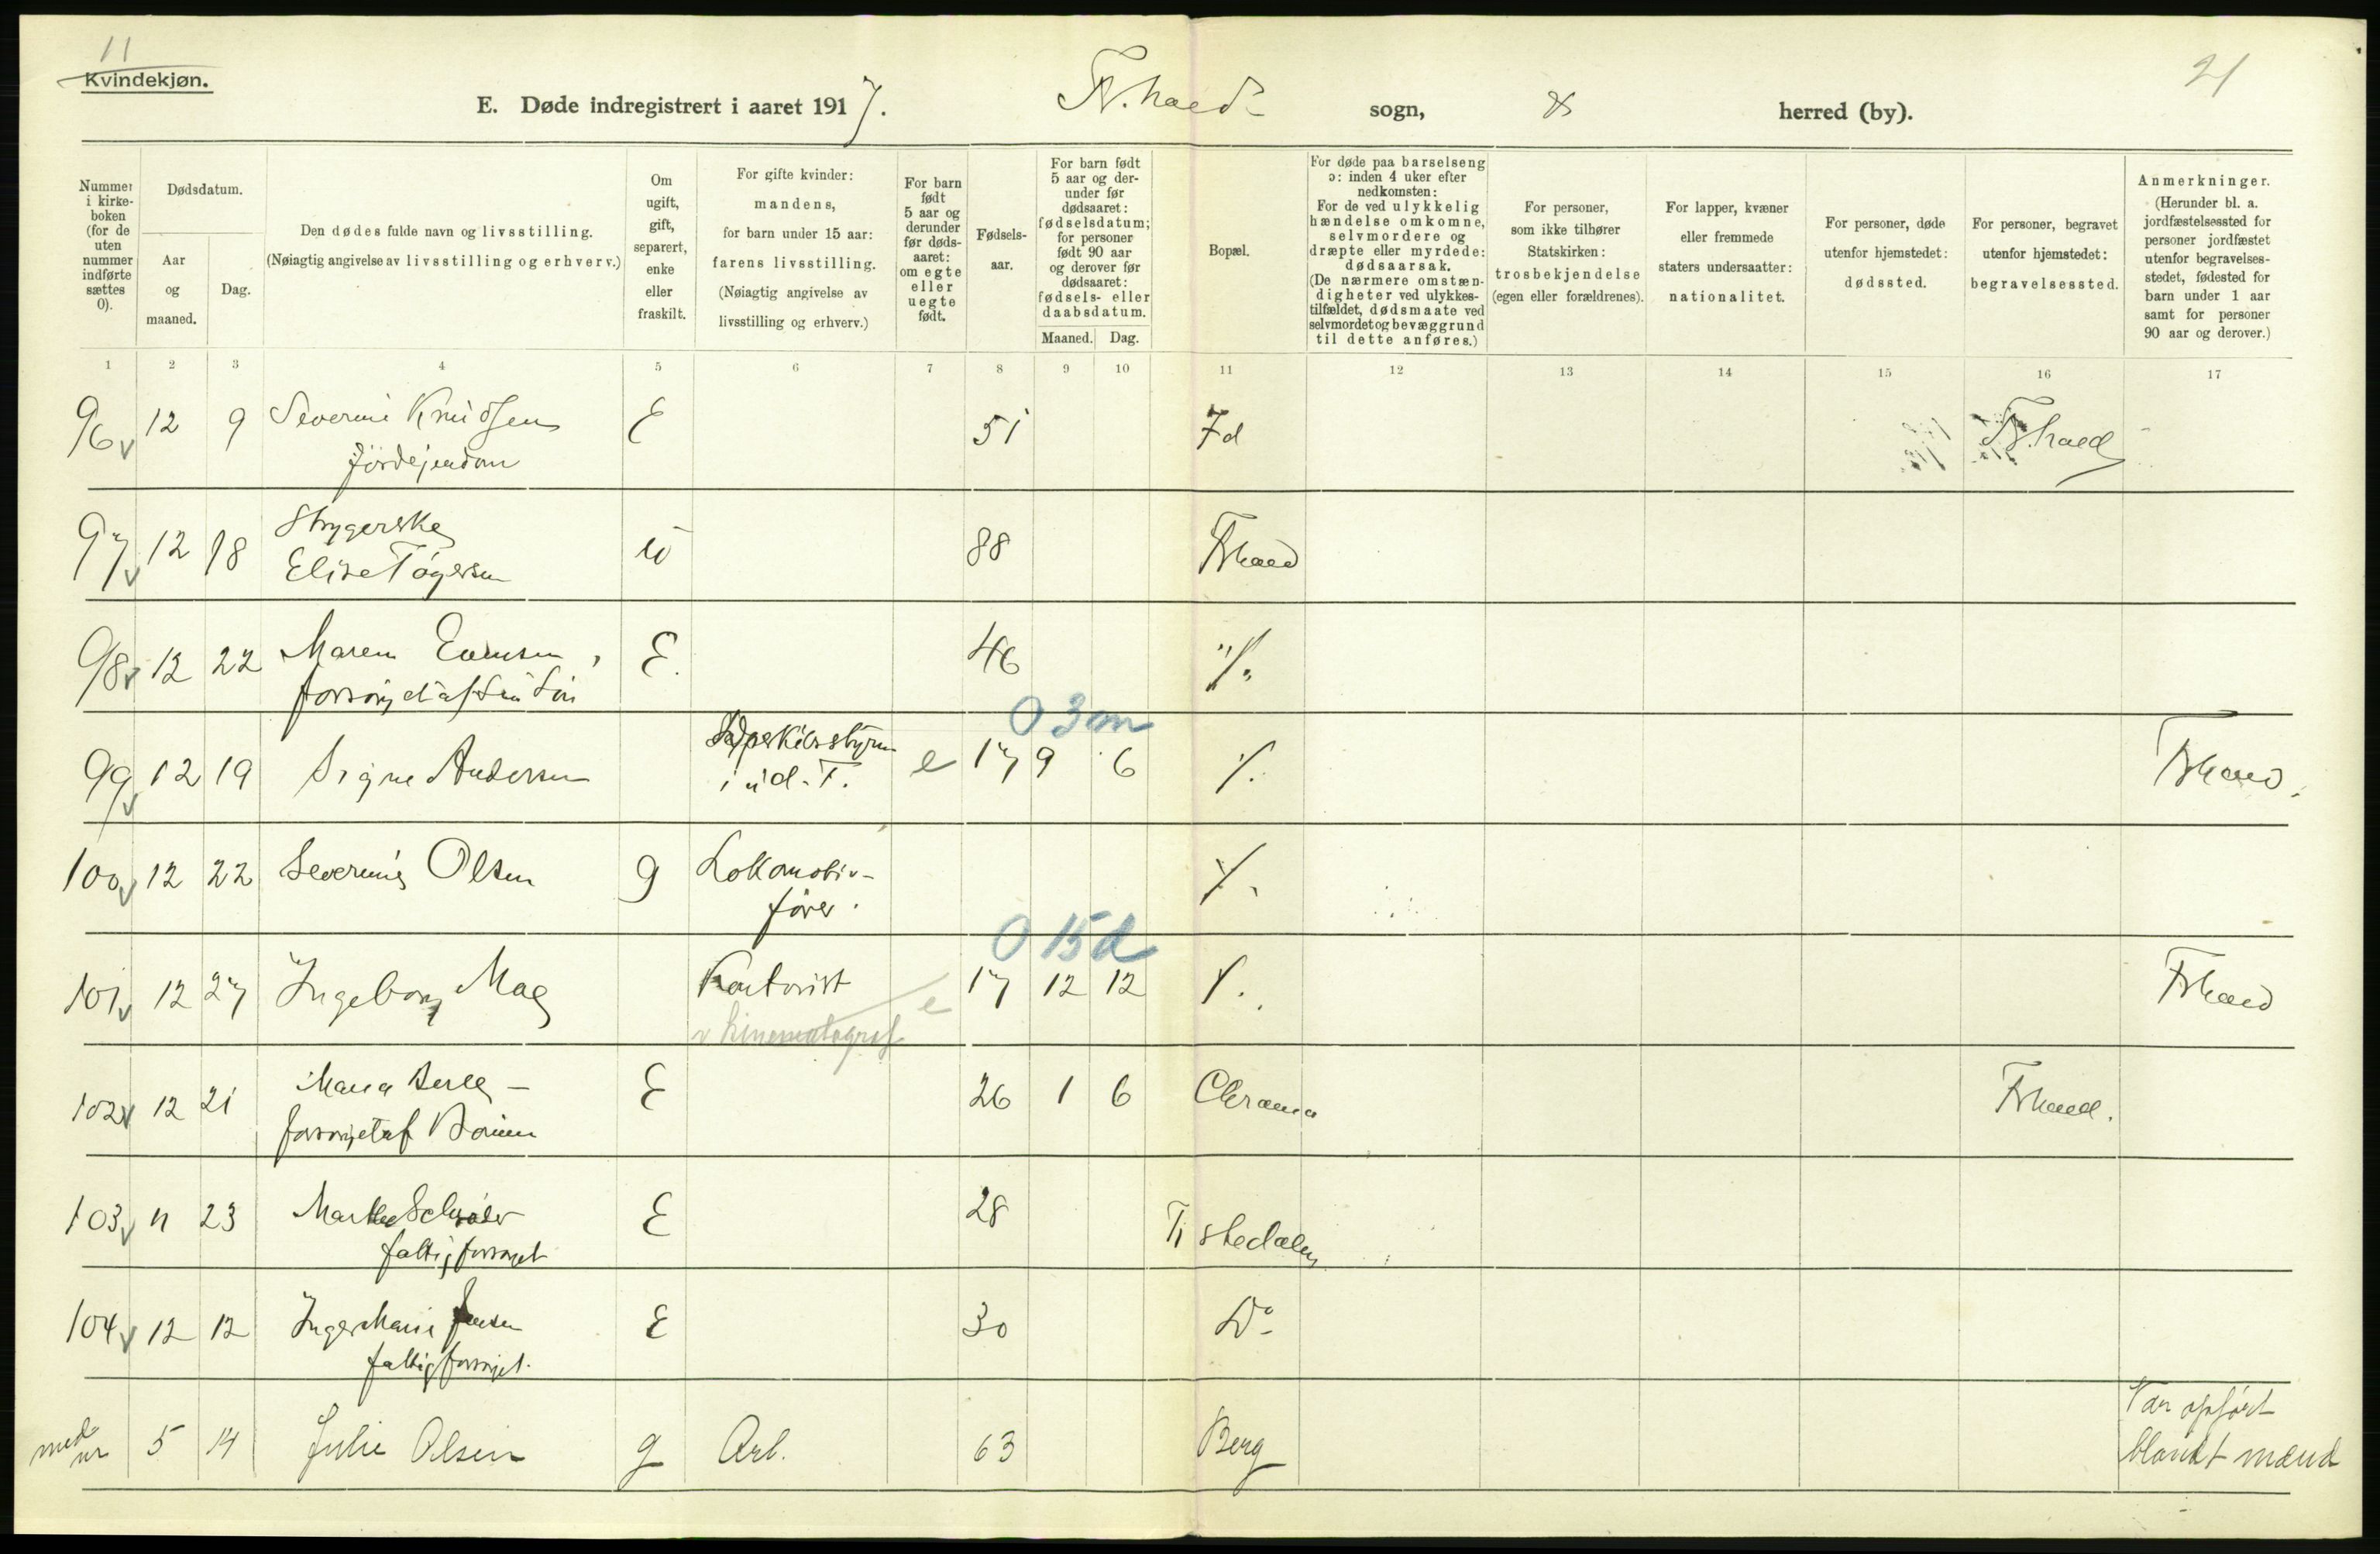 11
21
Kvindekjøn.
E. Døde indregistrert i aaret 1917. Fr.hald sogn, herred (by).
Nummer i kirkeboken (for de uten nummer indførte sættes 0).
Dødsdatum.
Aar og maaned.
Dag.
Den dødes fulde navn og livsstilling.
(Nøiagtig angivelse av livsstilling og erhverv.)
Om ugift, gift, separert, enke eller fraskilt.
For gifte kvinder: mandens, for barn under 15 aar: farens livsstilling. (Nøiagtig angivelse av livsstilling og erhverv.)
For barn født 5 aar og derunder før dødsaaret: om egte eller uegte født.
Fødselsaar.
For barn født 5 aar og derunder før dødsaaret: fødselsdatum; for personer født 90 aar og derover før dødsaaret: fødsels- eller daabsdatum.
Maaned. Dag.
Bopæl.
For døde paa barselseng ɔ: inden 4 uker efter nedkomsten: For de ved ulykkelig hændelse omkomne, selvmordere og dræpte eller myrdede: dødsaarsak. (De nærmere omstændigheter ved ulykkestilfældet, dødsmaate ved selvmordet og bevæggrund til dette anføres.)
For personer, som ikke tilhører Statskirken: trosbekjendelse (egen eller forældrenes).
For lapper, kvæner eller fremmede staters undersaatter: nationalitet.
For personer, døde utenfor hjemstedet: dødssted.
For personer, begravet utenfor hjemstedet: begravelsessted.
Anmerkninger. (Herunder bl. a. jordfæstelsessted for personer jordfæstet utenfor begravelsesstedet, fødested for barn under 1 aar samt for personer 90 aar og derover.)
1 2 3 4 5 6 7 8 9 10 11 12 13 14 15 16 17
96 12 9 Severine Knudsen E 51 Fd Fr.hald
97 12 18 Strygerske
Elise Tøgersen u 88 Frhald
98 12 22 Maren Evensen, E. 46 "/.
forsørjet af sin Søn
0 3 m
99 12 19 Signe Andersen i ud. F. e 17 9 6 /. Frhald.
100 12 22 Severine Olsen g Lokomotiv-
fører.
0 15 d
101 12 27 Ingeborg Mag Kontorist e 17 12 12 /. Frhald
v kinematograf
102 12 21 Maria Berg - E 26 1 6 Chrania Frhald.
forsørjet af Børnene
103 11 23 Marthe Schrøder E 28 Tistedalen
fattigforsørget
104 12 12 Inger Marie Jensen E 30 Do
fattigforsørget.
med nr 5 14 Julie Olsen g Arb. 63 Berg Var opført
blandt mænd